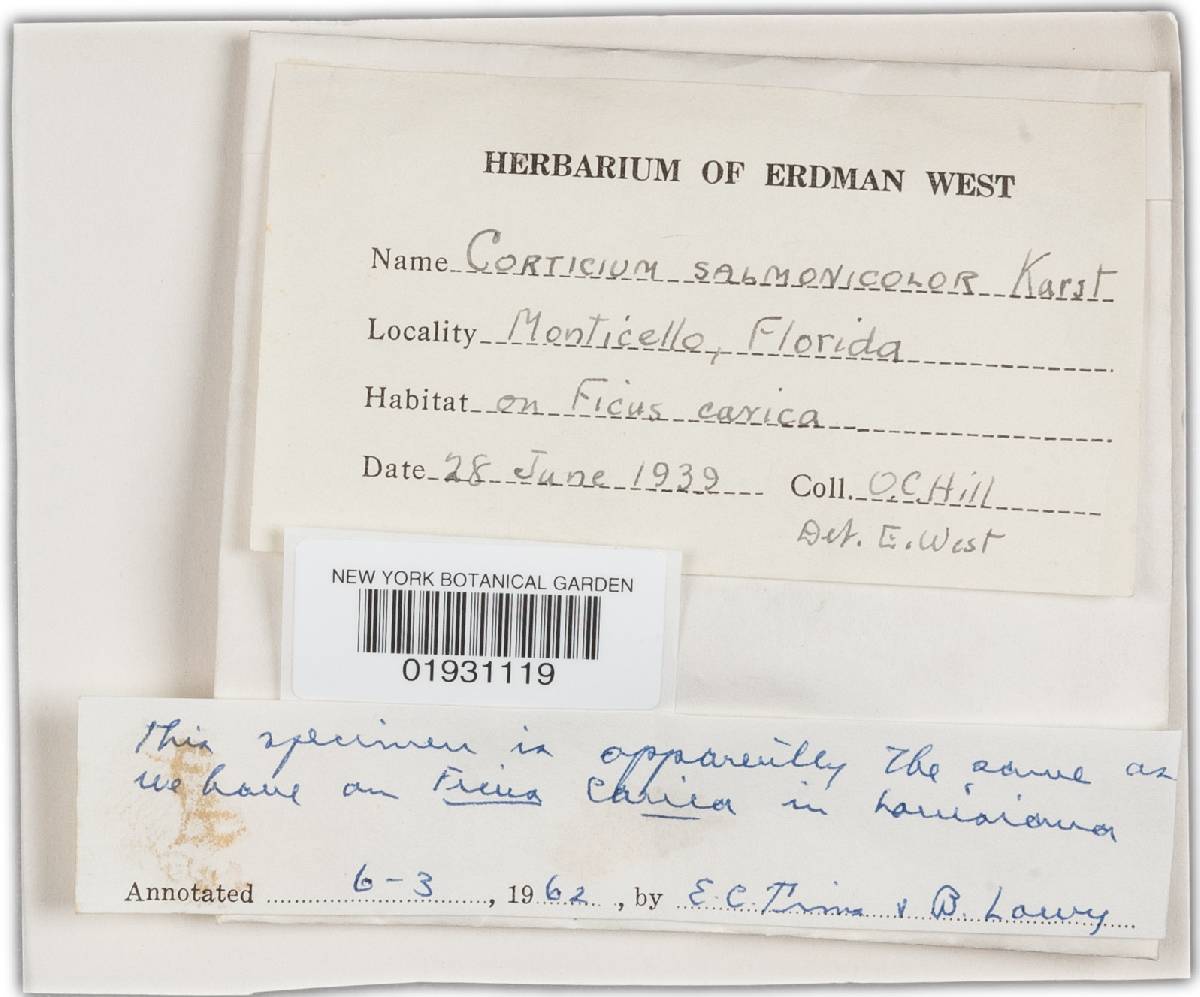 HERBARIUM OF ERDMAN WEST
Name CORTICIUM SALMONICOLOR Karst
Locality Monticello, Florida
Habitat on Ficus carica
Date 28 June 1939 Coll. O.C. Hill
Det. E. West
NEW YORK BOTANICAL GARDEN
01931119
This specimen is apparently the same as
we have on Ficus Carica in Louisiana
Annotated 6-3, 1962, by E.C. Tims & B. Lowy